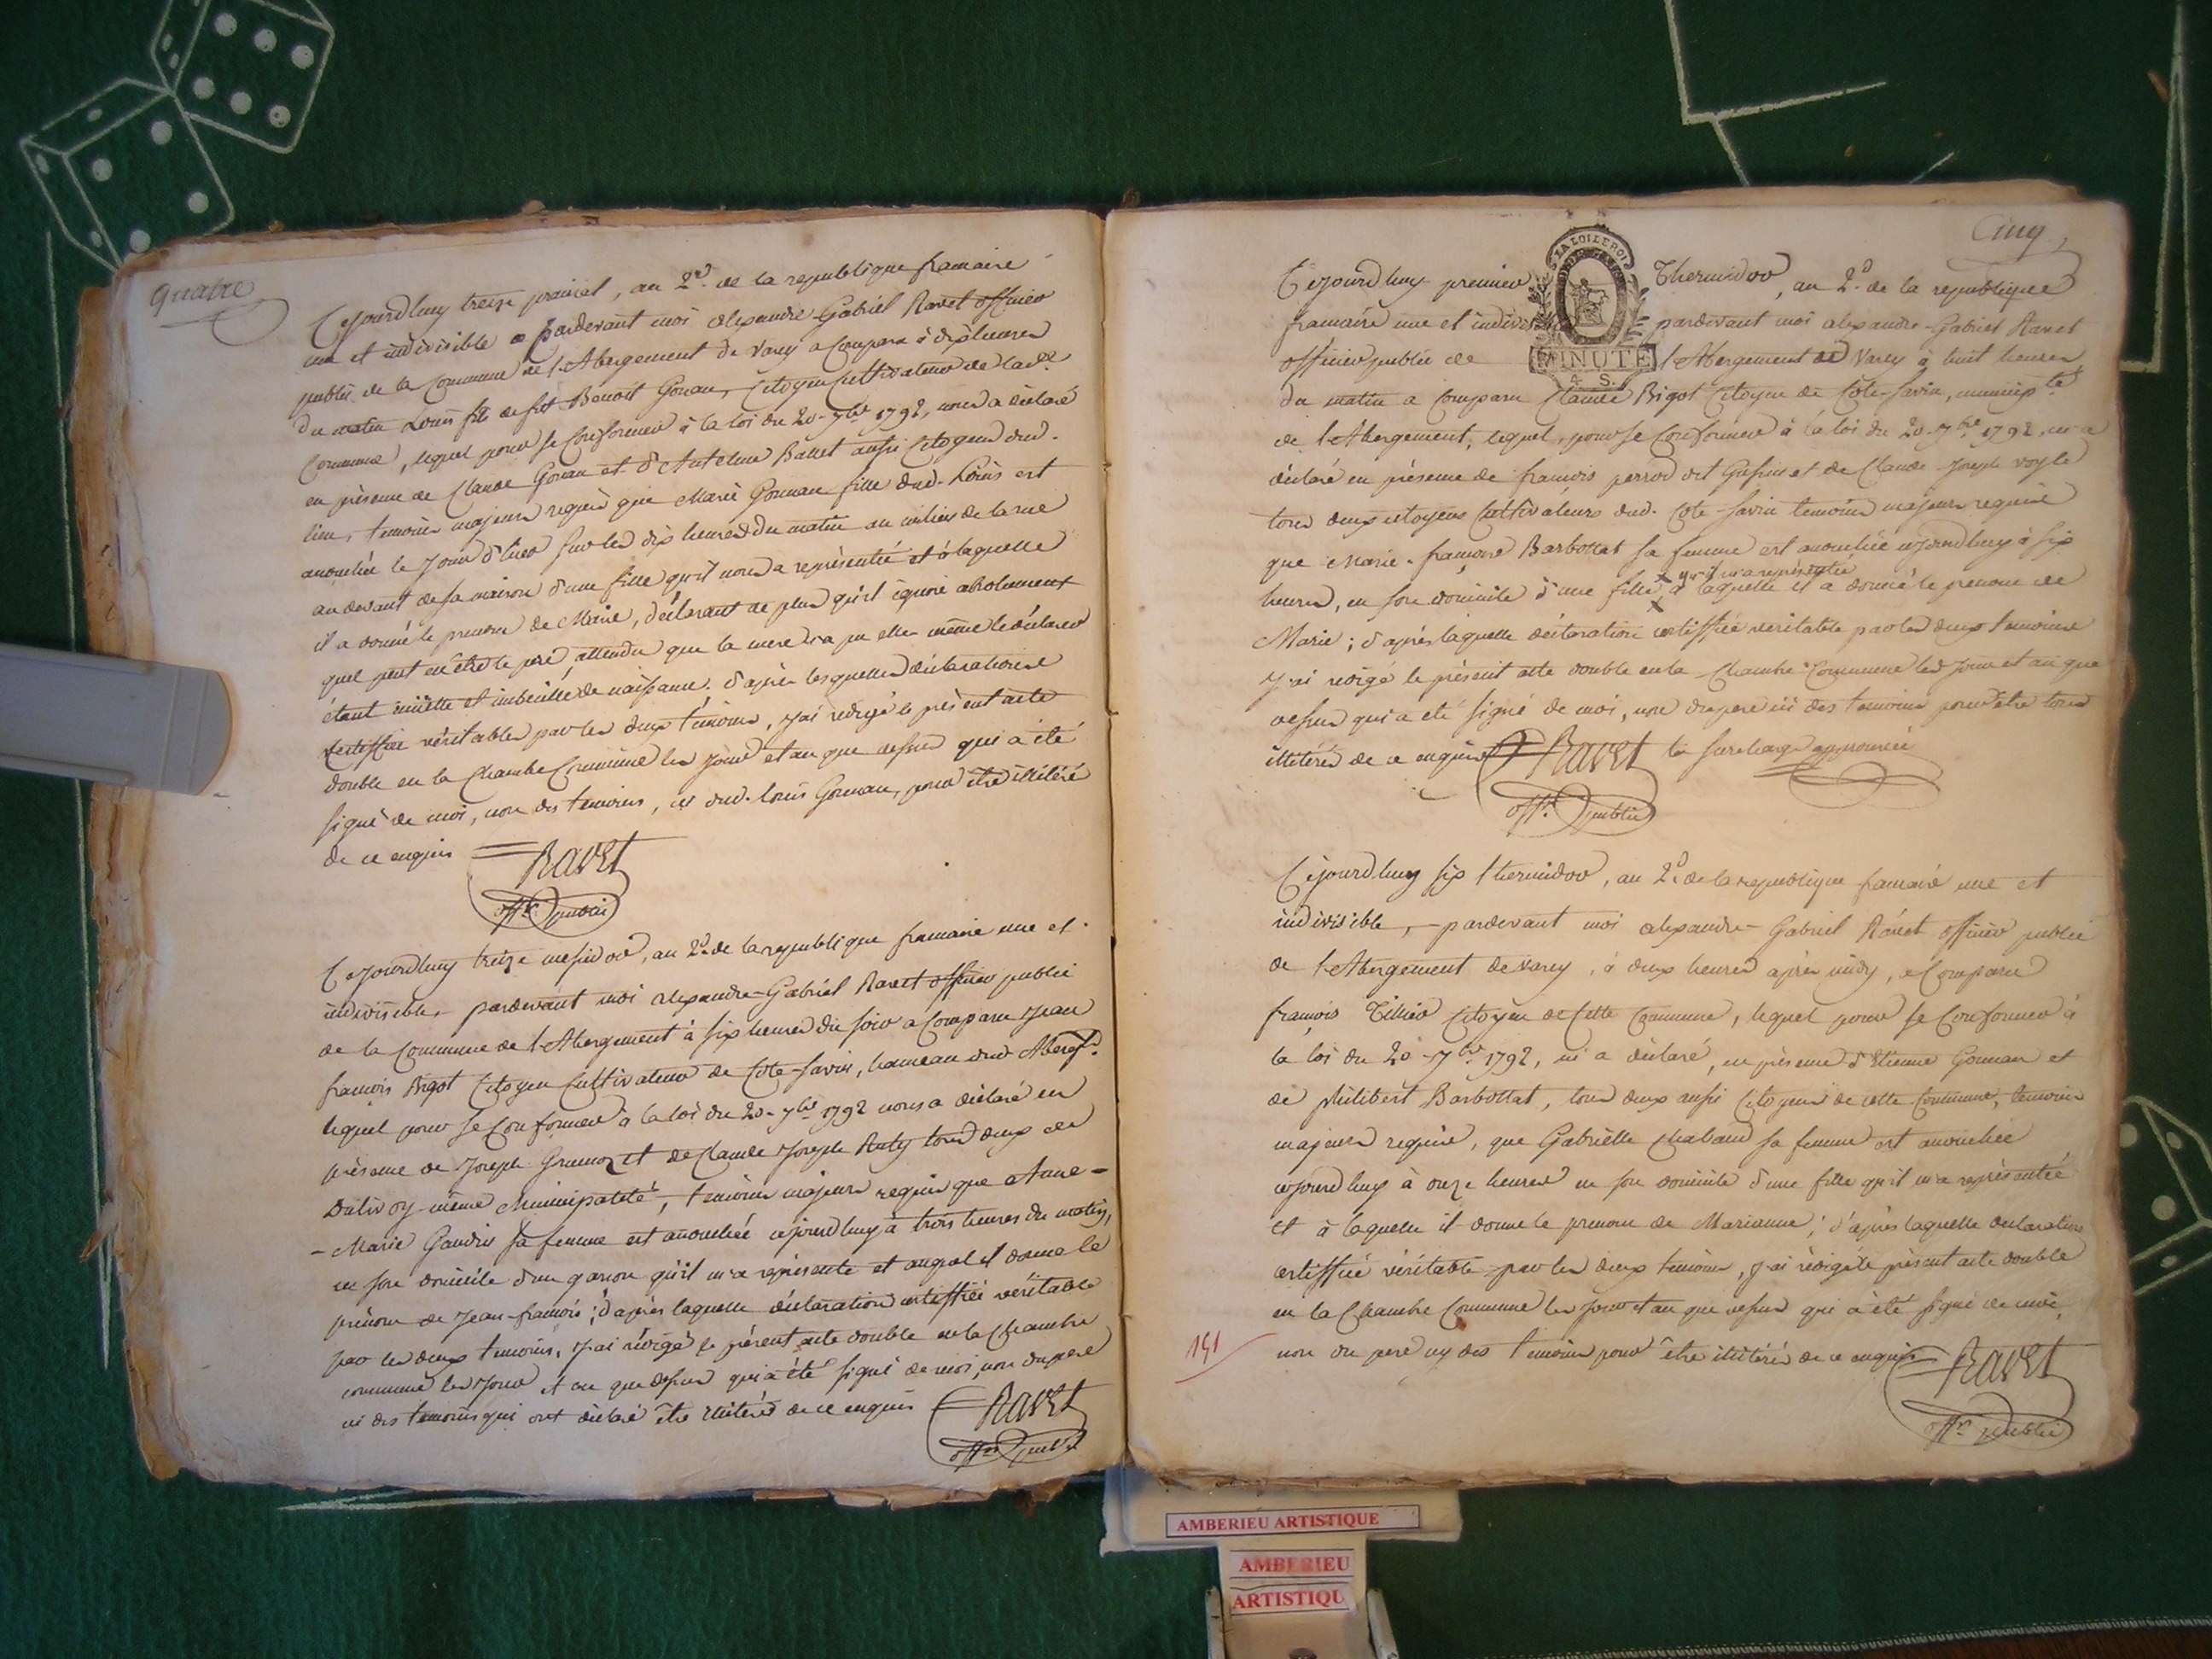 quatre
Cejourdhuy treize prairial, an 2d. de la republique francaise
une et indivisible pardevant moi alexandre-Gabriel Ravet officier
public de la Commune de l'Abergement de Varey a Comparu à dix heures
du matin Louis fils de feu Benoit Gonan, Citoyen Cultivateur de lade.
Commune, lequel pour se Conformer à la loi du 20-7bre 1792, nous a déclaré
en présence de Claude Gonan et d'Antelme Ballet aussi Citoyens dud.
lieu, temoins majeurs requis que Marie Gonnan fille dud. Louis est
accouchée le jour d'hier sur les dix heures du matin au milieu de la rue
au devant de sa maison d'une fille qu'il nous a représentée et à laquelle
il a donné le prenom de Marie, déclarant de plus qu'il ignore absolument
quel peut en être le pere, attendu que la mere n'a pu elle même le déclarer
étant müette et imbecille de naissance. d'après lesquelles déclarations
certiffiée véritables par les deux témoins, j'ai redigé le présent acte
double en la Chambe Commune les jour et an que dessus qui a été
signé de moi, non des temoins, ni dud. Louis Gonnan, pour être illitéré
de ce enquis Ravet
offr. public
Cejourdhuy treize messidor, an 2d. de la republique francaise une et
indivisible, pardevant moi alexandre-Gabriel Ravet officier public
de la Commune de l'Abergement à six heures du soir a Comparu Jean
francois Bigot Citoyen Cultivateur de Cote-Savin, hameau dud
lequel pour se Conformer à la loi du 20-7bre 1792 nous a déclaré en
présence de Joseph et de Claude Joseph tous deux de
même Municipalité, temoins majeurs requis que Anne-
-Marie Gaudin sa femme est accouchée cejourdhuy à trois heures du matin,
en son domicile d'un garcon qu'il m'a représenté et auquel il donne le
prénom de Jean-francois; d'après laquelle déclaration certiffiée véritable
par les deux temoins, j'ai rédigé le présent acte double en la Chambre
commune les jour et an que dessus qui a été signé de moi, non du pere
ni des temoins qui ont déclaré être illitérés de ce enquis Ravet
offr. public
Cinq
LA LOI LE ROI
MINUTE
4 S.
Cejourdhuy premier Thermidor, an 2d. de la republique
francaise une et indivisible pardevant moi alexandre-Gabriel Ravet
officier public de l'Abergement de Varey à huit heures
du matin a Comparu Claude Bigot Citoyen de Côte-Savin, municip.té
de l'Abergement, lequel, pour se Conformer à la loi du 20-7bre 1792, m'a
déclaré en présence de francois perrod dit et de Claude-Joseph
tous deux citoyens Cultivateurs dud. Cote-Savin temoins majeurs requis
que Marie-francoise Barbottat sa femme est accouchée cejourdhuy à six
x qu'il m'a représentée
heures, en son domicile d'une fille x à laquelle il a donné le prenom de
Marie; d'après laquelle déclaration certiffiée veritable par les deux temoins
j'ai rédigé le présent acte double en la Chambre Commune les jour et an que
dessus qui a été signé de moi, non du pere ni des temoins pour être tous
illitérés de ce enquis Ravet la surcharge approuvée
offr. public
Cejourdhuy six thermidor, an 2d. de la republique francaise une et
indivisible, pardevant moi alexandre-Gabriel Ravet officier public
de l'Abergement de Varey, à deux heures après midy, a Comparu
françois Tillier Citoyen de Cette Commune, lequel pour se Conformer à
la loi du 20-7bre 1792, m'a déclaré, en présence d'Etienne Gonnan et
de philibert Barbottat, tous deux aussi Citoyens de cette Commune, temoins
majeurs requis, que Gabrielle Chabaud sa femme est accouchée
cejourdhuy à onze heures en son domicile d'une fille qu'il m'a représentée
et à laquelle il donne le prenom de Marianne; d'après laquelle déclaration
certiffiée véritable par les deux temoins, j'ai rédigé le présent acte double
en la Chambre Commune les jour et an que dessus qui a été signé de moi,
non du pere ny des temoins pour être illitérés de ce enquis Ravet
offr. public
151
AMBERIEU ARTISTIQUE
AMBERIEU
ARTISTIQU